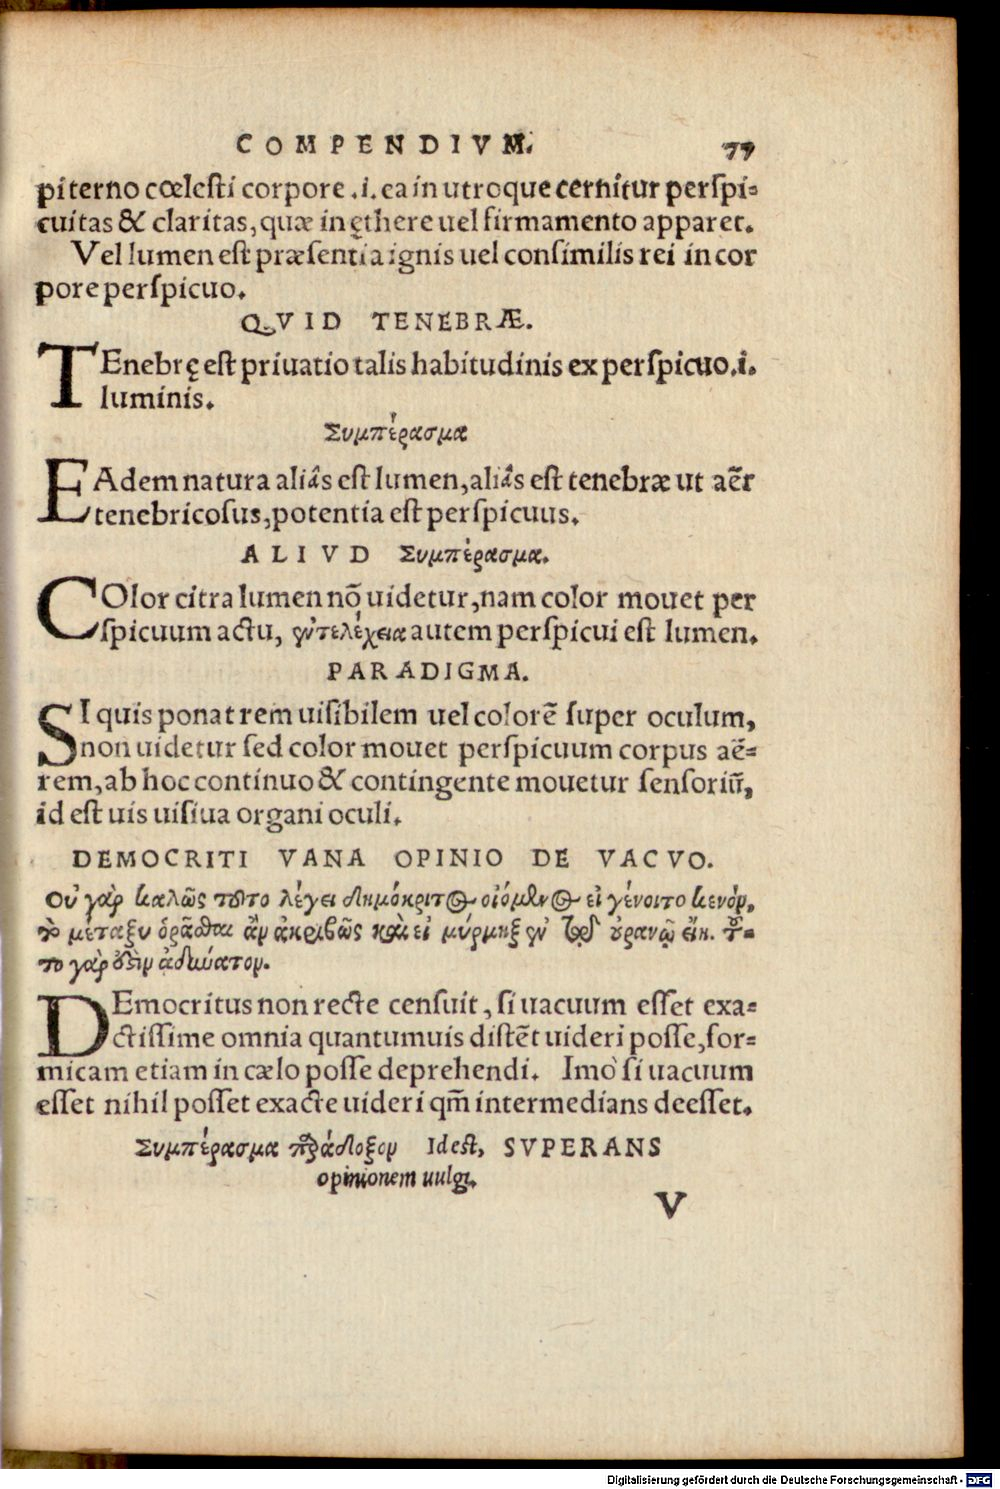 COMPENDIVM. 77
piterno cœlesti corpore .i. ea in utroque cernitur perspi-
cuitas & claritas, quæ in ęthere uel firmamento apparet.
Vel lumen est præsentia ignis uel consimilis rei in cor
pore perspicuo.
QVID TENEBRÆ.
TEnebrę est priuatio talis habitudinis ex perspicuo .i.
luminis.
Συμπέρασμα
EAdem natura aliâs est lumen, aliâs est tenebræ ut aẽr
tenebricosus, potentia est perspicuus.
ALIVD Συμπέρασμα.
COlor citra lumen nõ uidetur, nam color mouet per
spicuum actu, ἐντελέχεια autem perspicui est lumen.
PARADIGMA.
SI quis ponat rem uisibilem uel colorẽ super oculum,
non uidetur sed color mouet perspicuum corpus aẽ-
rem, ab hoc continuo & contingente mouetur sensoriũ,
id est uis uisiua organi oculi.
DEMOCRITI VANA OPINIO DE VACVO.
Οὐ γὰρ καλῶς τοῦτο λέγει δημόκριτος οἰόμενος εἰ γένοιτο κενόν,
τὸ μέταξυ ὁρᾶσθαι ἂν ἀκριβῶς καὶ εἰ μύρμηξ ἐν τῷ οὐρανῷ εἴη. τοῦ-
το γὰρ ὅδεῖν ἀδύνατον.
DEmocritus non recte censuit, si uacuum esset exa-
ctissime omnia quantumuis distẽt uideri posse, for-
micam etiam in cælo posse deprehendi. Imò si uacuum
esset nihil posset exacte uideri qm̃ intermedians deesset.
Συμπέρασμα παράδοξον Idest, SVPERANS
opinionem uulgi.
V
Digitalisierung gefördert durch die Deutsche Forschungsgemeinschaft - DFG